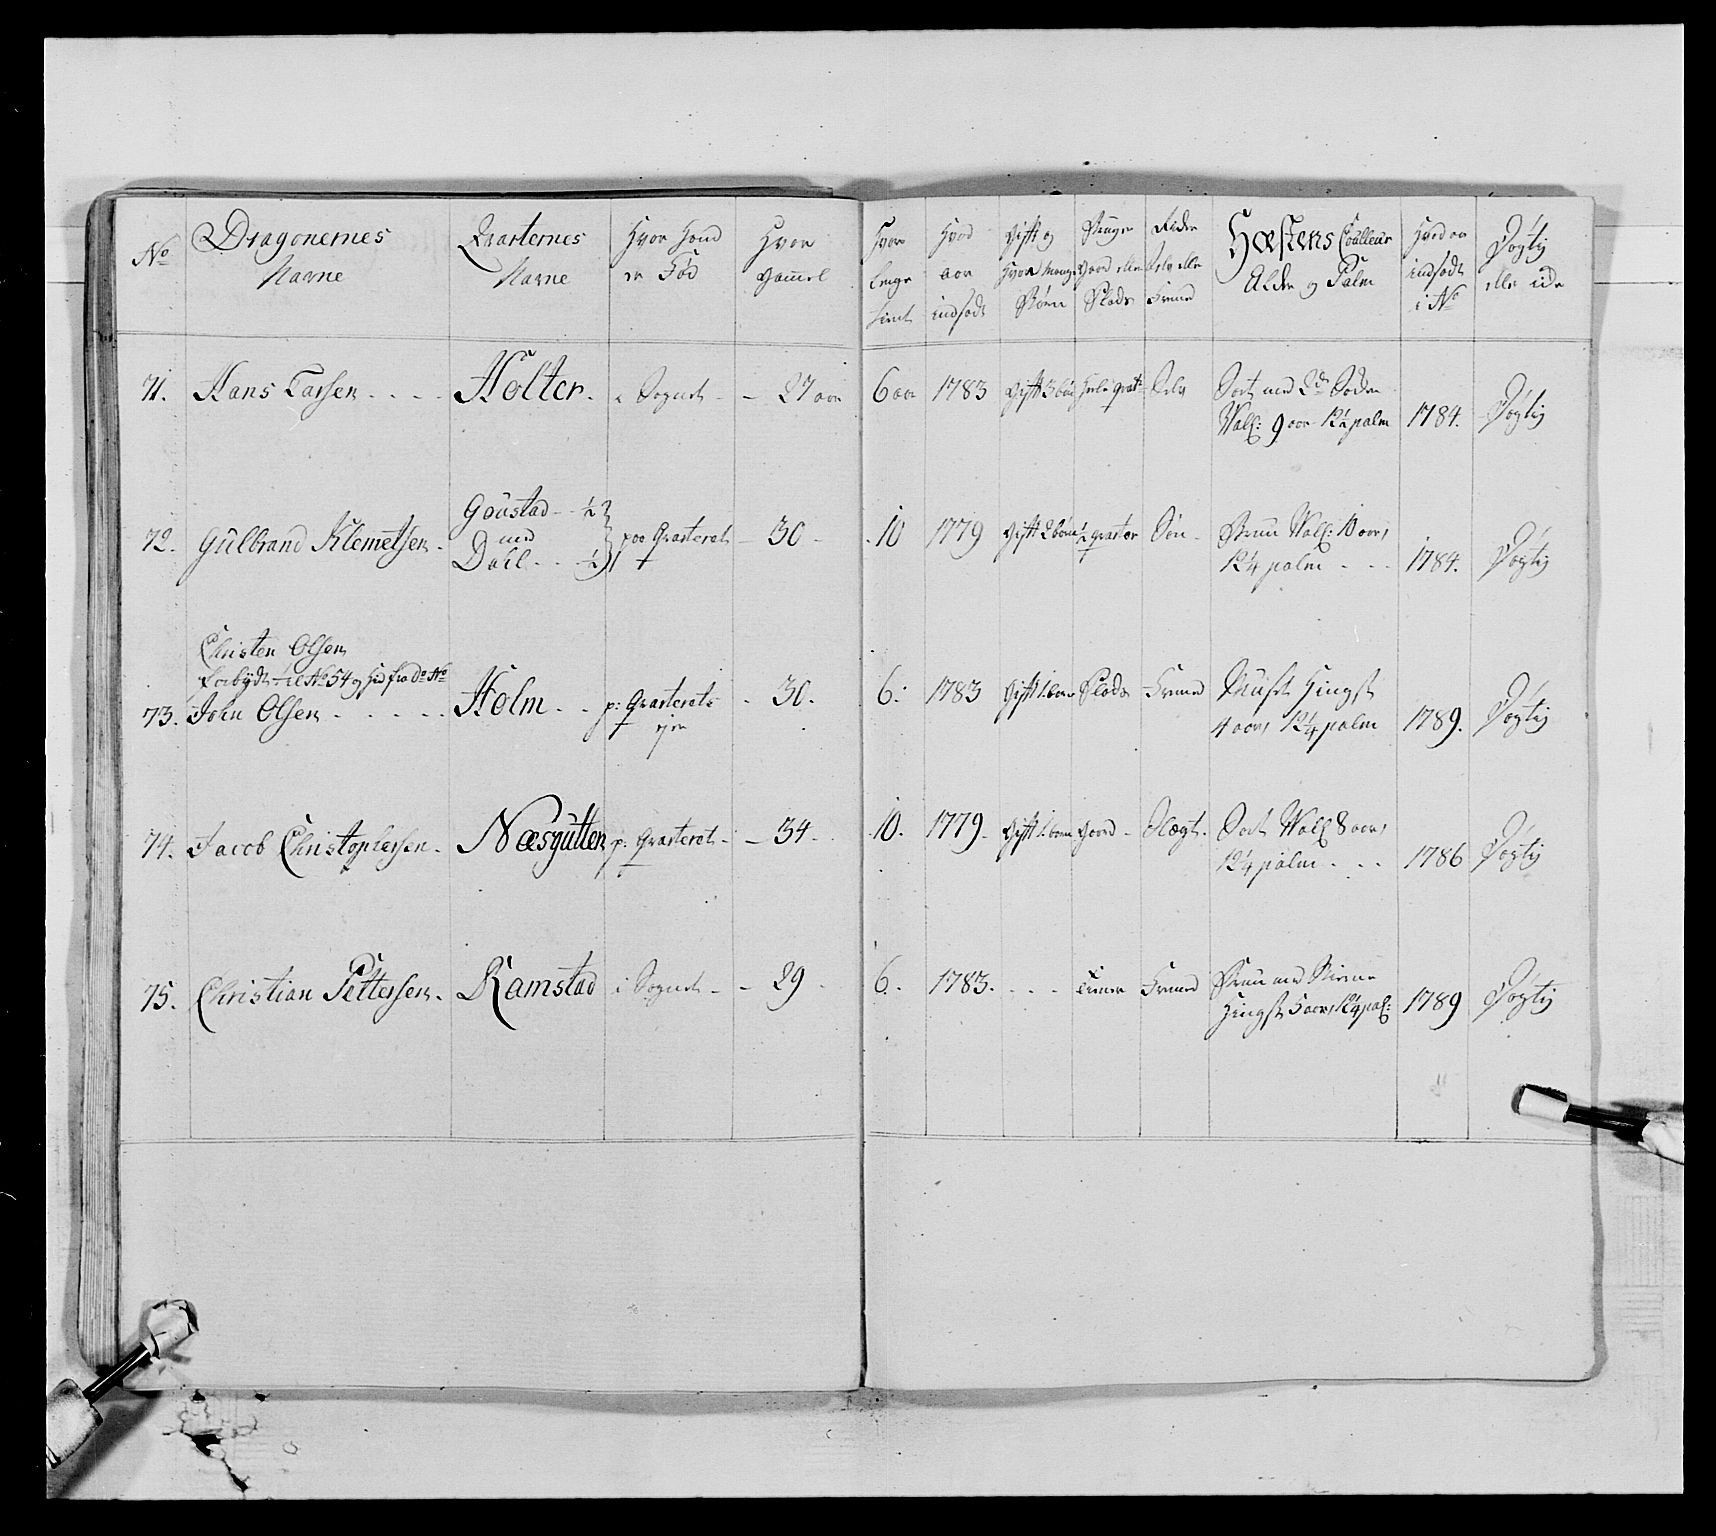 No Dragonernes Navne Qvarternes Navne Hvor Hand er Fød Hvor Gamel Hvor lenge tient Hvad aar indsadt Gift og Hvor mange Børn Bruger Gaard eller Plads Rider Selv eller Fremed Hæstens Coulleur Alder og Palm Hvad aar indsadt i No Dygtig eller icke
71. Hans Larsen . . . . Holter. i Sognet - - 27 aar 6 aar 1783 Gift 3 børn heele qvart: Selv Sort med 2de Sokker
Wall: 9 aar 12½ palm 1784. Dygtig
Goustad - ½
72. Gulbrand Klemetsen. med paa Qvarteret - 30 - 10 1779 Gift 2 børn ½ qvarter Søn - Bruun Wall: 10 aar,
Dahl . . . ½ 12¼ palm . . . 1784. Dygtig
Christen Olsen
forbydt til No 54 og hid fra Do No
73. John Olsen . . . . . Holm . . p: Qvarterets - 30. 6. 1783 Gift 1 barn Plads Fremed Muset Hingst
4 aar, 12¼ palm 1789. Dygtig
74. Jacob Christophersen. Næsgutten p: Qvarteret. - 34 - 10. 1779. Gift 1 barn Gaard - Slægt. Sort Wall 8 aar,
12¼ palm . . . 1786 Dygtig
75. Christian Pettersen. Ramstad i Sognet - - 29 - 6. 1783. . . . Tiener Fremed Bruun med Stierne
Hingst 5 aar, 12¼ pal: 1789 Dygtig